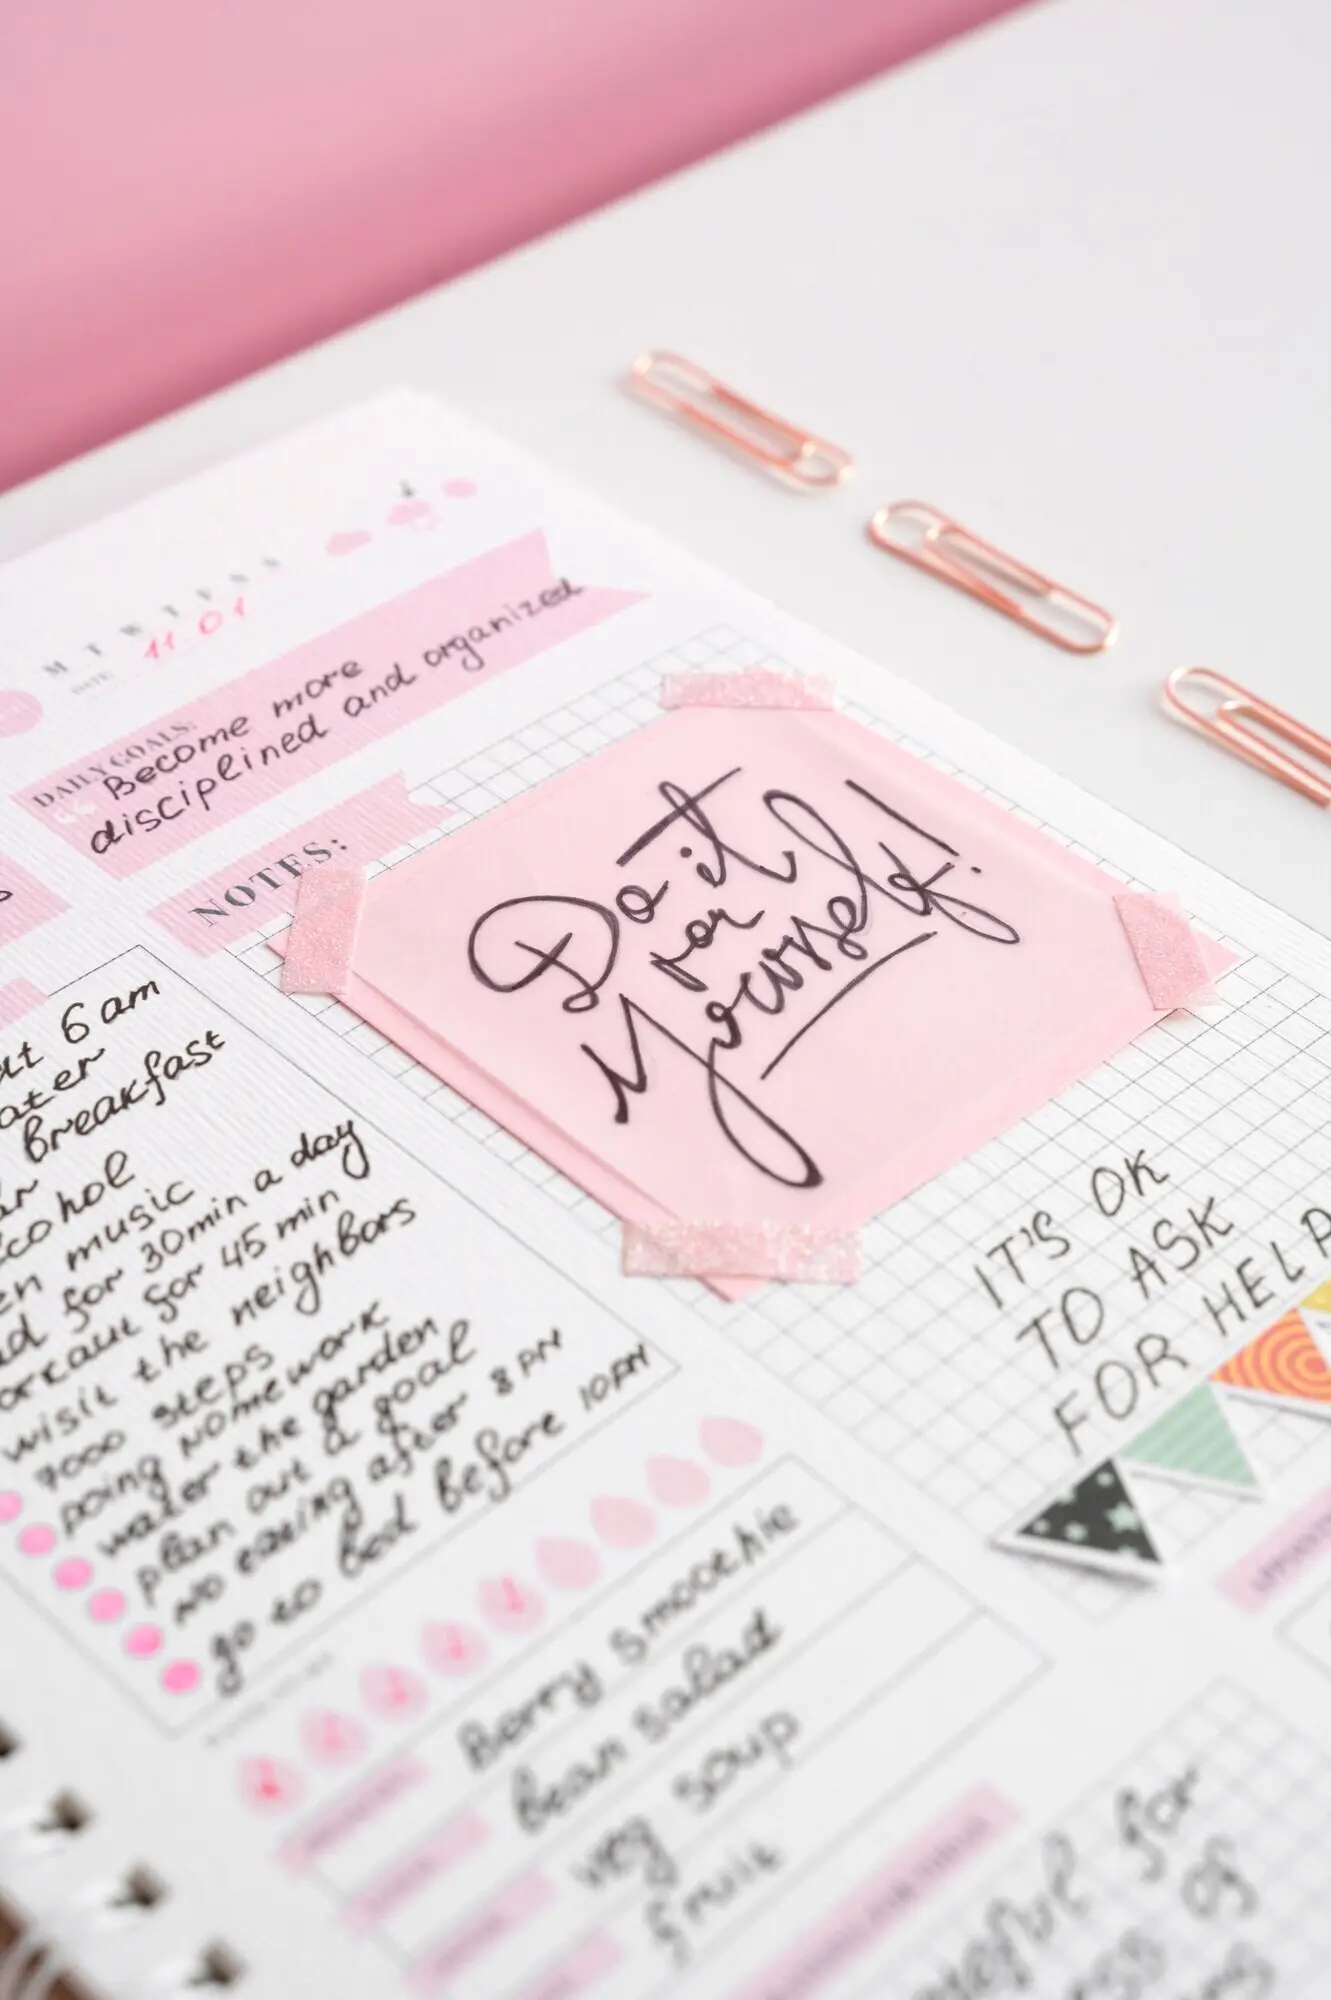 M T W T F S S
DATE 11 01
DAILY GOALS:
Become more
disciplined and organized
NOTES:
Do it
for
Yourself!
6 am
Breakfast
music
for 30min a day
for 45 min
wisit the neighbors
7000 steps
doing homework
water the garden
plan out a goal
no eating after 8 PM
go to bed before 10 PM
IT'S OK
TO ASK
FOR HELP
Berry Smoothie
bean salad
veg soup
fruit
for
of